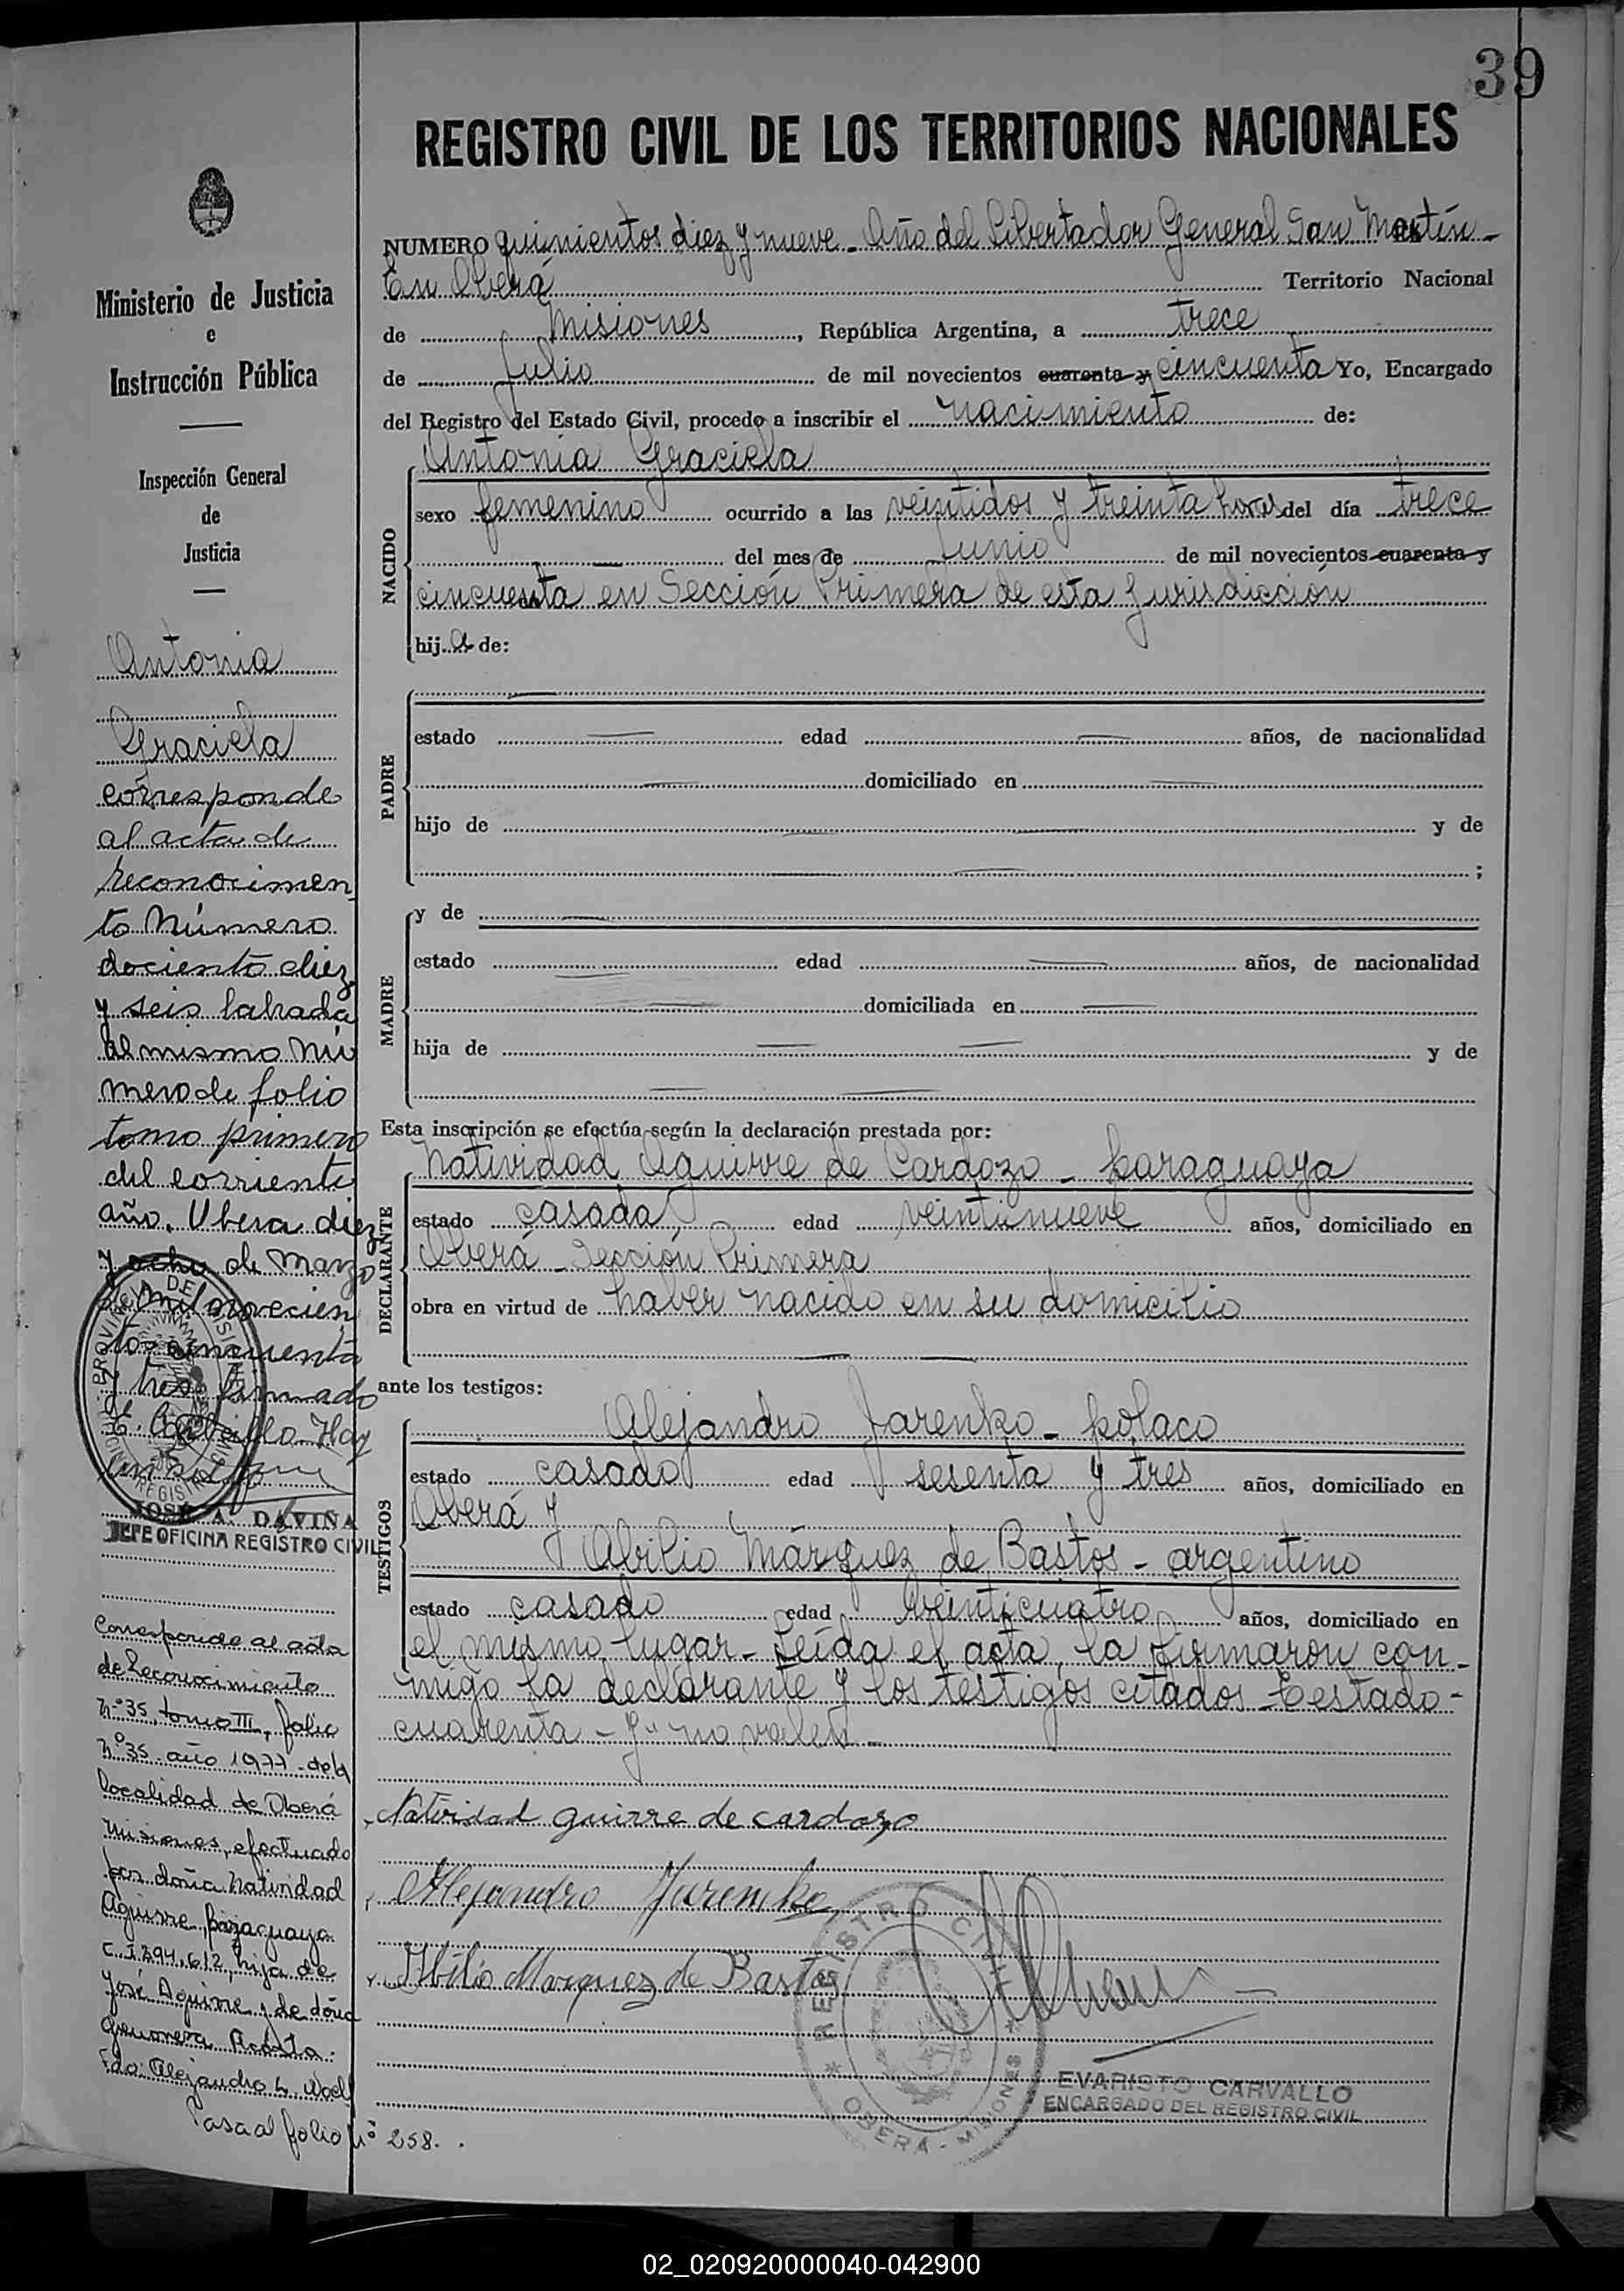 39
REGISTRO CIVIL DE LOS TERRITORIOS NACIONALES
Ministerio de Justicia
e
Instrucción Pública
Inspección General
de
Justicia
Antonia
Graciela
corresponde
al acta de
reconocimien
to Número
dociento diez
y seis labrada
al mismo Nú
mero de folio
tomo primero
del corriente
año. Obera diez
y ocho de Marzo
mil novecien
tos cincuenta
y tres firmado
E. Carvallo Hay
un sello
PROVINCIA DE MISIONES
REGISTRO CIVIL
JOSÉ A. DAVIÑA
JEFE OFICINA REGISTRO CIVIL
Corresponde al acta
de Reconocimiento
Nº 35, tomo III, folio
Nº 35 año 1977 de la
localidad de Oberá
Misiones, efectuado
por doña Natividad
Aguirre, paraguaya
C.I. 294.612, hija de
José Aguirre y de doña
Genoveva Acosta.
Fdo: Alejandro L.
Pasa al folio Nº 258.
NUMERO quinientos diez y nueve - Año del Libertador General San Martín -
En Oberá Territorio Nacional
de Misiones, República Argentina, a trece
de Julio de mil novecientos cuarenta y cincuenta Yo, Encargado
del Registro del Estado Civil, procedo a inscribir el nacimiento de:
Antonia Graciela
NACIDO
sexo femenino ocurrido a las veintidos y treinta horas del día trece
del mes de Junio de mil novecientos cuarenta y
cincuenta en Sección Primera de esta jurisdicción
hija de:
PADRE
estado edad años, de nacionalidad
domiciliado en
hijo de y de
;
MADRE
y de
estado edad años, de nacionalidad
domiciliada en
hija de y de
Esta inscripción se efectúa según la declaración prestada por:
DECLARANTE
Natividad Aguirre de Cardozo - paraguaya
estado casada edad veintinueve años, domiciliado en
Oberá - Sección Primera
obra en virtud de haber nacido en su domicilio
ante los testigos:
TESTIGOS
Alejandro Jarenko - polaco
estado casado edad sesenta y tres años, domiciliado en
Oberá y
Abilio Márquez de Bastos - argentino
estado casado edad veinticuatro años, domiciliado en
el mismo lugar - Leída el acta, la firmaron con-
migo la declarante y los testigos citados - Testado -
cuarenta - y" no valen -
Natividad guirre de cardozo
Alejandro Jarenko
Abilio Marquez de Bastos
REGISTRO CIVIL
OBERA - MISIONES
EVARISTO CARVALLO
ENCARGADO DEL REGISTRO CIVIL
02_020920000040-042900